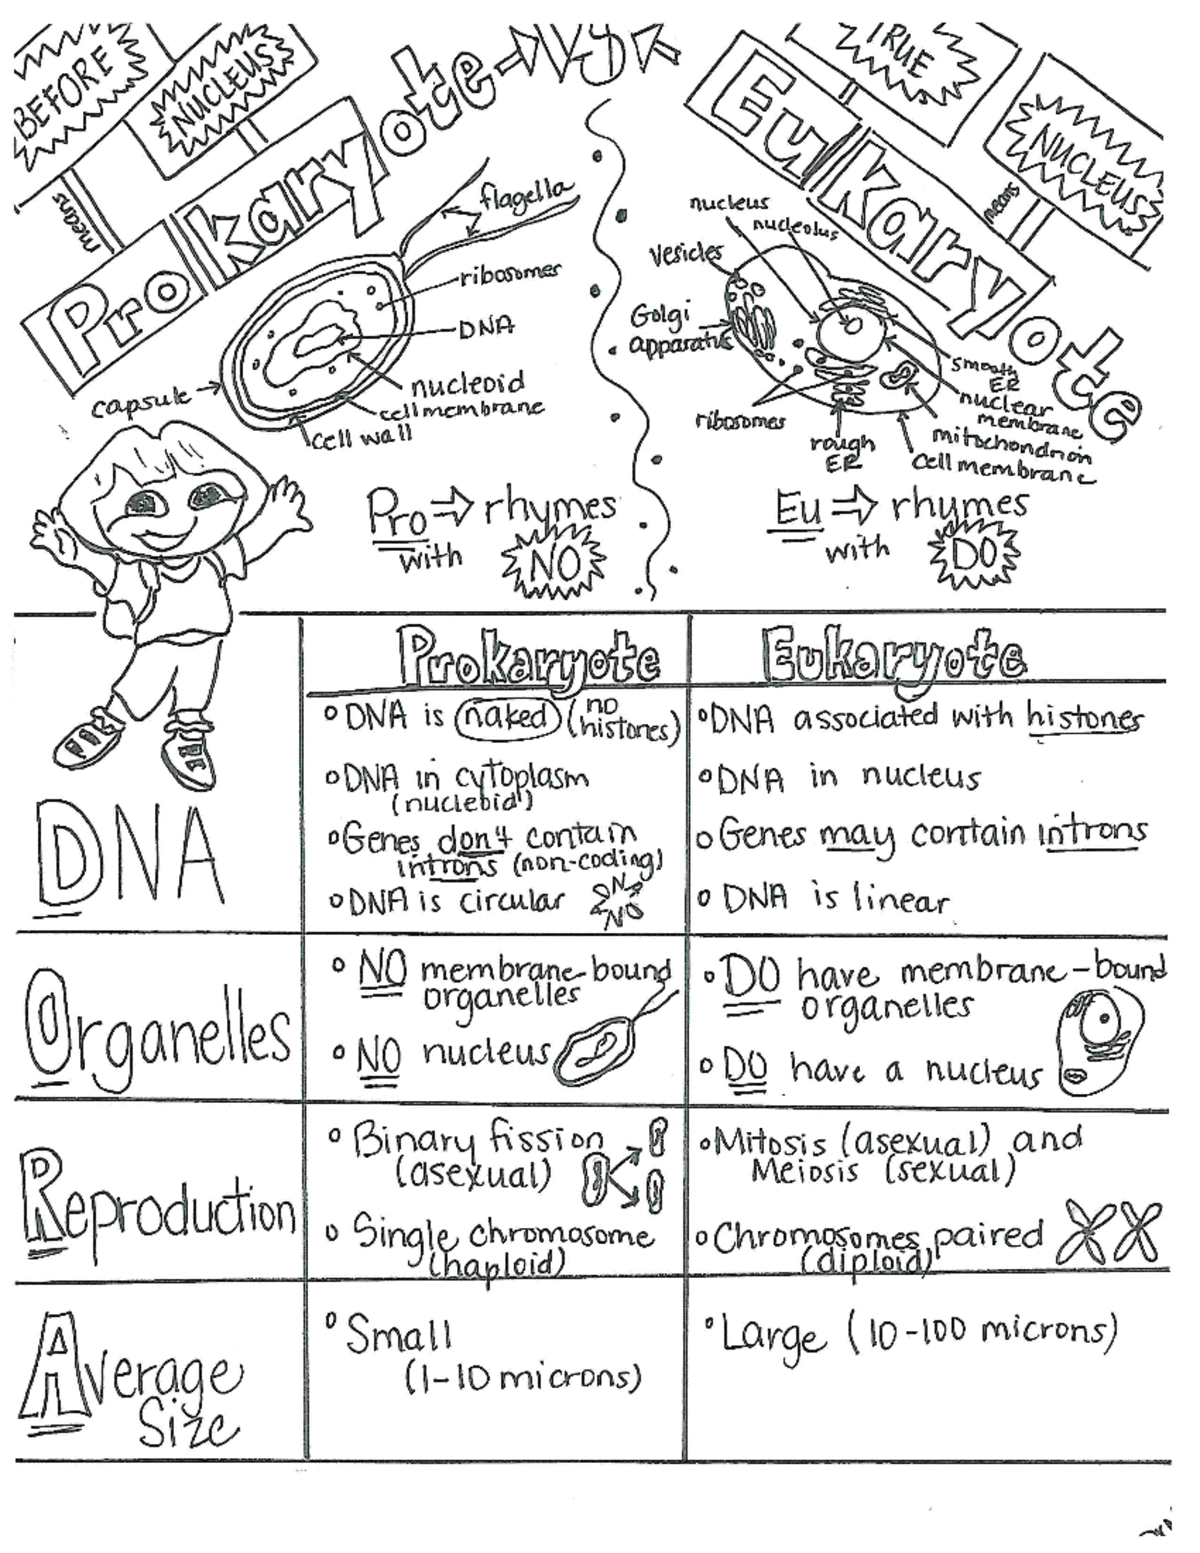 BEFORE
means
NUCLEUS
Prokaryote
VS
TRUE
means
NUCLEUS
Eukaryote
flagella
ribosomes
DNA
nucleoid
cell membrane
cell wall
capsule
nucleus
nucleolus
vesicles
Golgi
apparatus
ribosomes
rough
ER
smooth
ER
nuclear
membrane
mitochondrion
cell membrane
Pro ⇒ rhymes
with NO
Eu ⇒ rhymes
with DO
Prokaryote
Eukaryote
DNA
DNA is naked (no histones)
DNA in cytoplasm
(nucleoid)
Genes don't contain
introns (non-coding)
DNA is circular
DNA associated with histones
DNA in nucleus
Genes may contain introns
DNA is linear
Organelles
NO membrane-bound
organelles
NO nucleus
DO have membrane-bound
organelles
DO have a nucleus
Reproduction
Binary fission
(asexual)
Single chromosome
(haploid)
Mitosis (asexual) and
Meiosis (sexual)
Chromosomes paired
(diploid)
Average
Size
Small
(1-10 microns)
Large (10-100 microns)